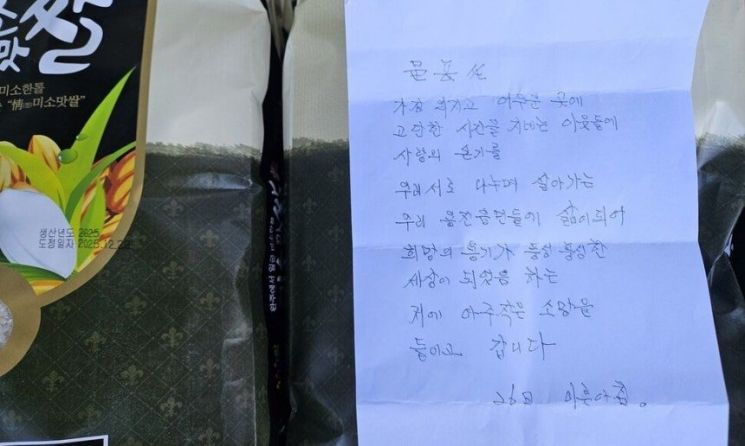 쌀
맛
미소한돌
"情미소맛쌀"
생산년도 2025
도정일자 2025.12.22
가장 외지고 어두운 곳에
고단한 시간을 지내는 이웃들에
사랑의 온기를
우리 서로 나누며 살아가는
우리 웅진읍면들의 삶이 되어
희망의 용기가 풍성 풍성한
세상이 되었음 하는
저에 아주작은 소망을
들이고 갑니다
26日 이른아침.